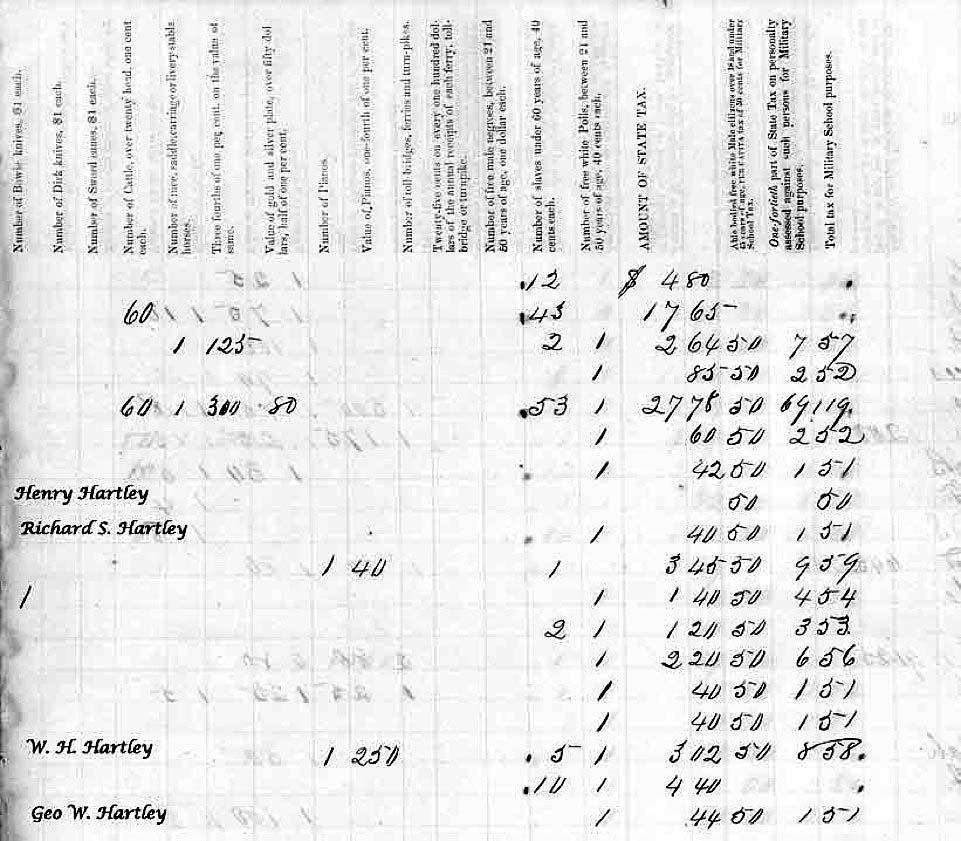 Number of Bowie knives, $1 each.
Number of Dirk knives, $1 each.
Number of Sword canes, $1 each.
Number of Cattle, over twenty head, one cent each.
Number of race, saddle, carriage or livery stable horses.
Three fourths of one per cent. on the value of same.
Value of gold and silver plate, over fifty dollars, half of one per cent.
Number of Pianos.
Value of Pianos, one-fourth of one per cent.
Number of toll-bridges, ferries and turn-pikes.
Twenty-five cents on every one hundred dollars of the annual receipts of each ferry, toll-bridge or turnpike.
Number of free male negroes, between 21 and 50 years of age, one dollar each.
Number of slaves under 60 years of age, 40 cents each.
Number of free white Polls, between 21 and 50 years of age, 40 cents each.
AMOUNT OF STATE TAX.
Able bodied free white Male citizens over 18 and under 45 years of age, tax of 50 cents for Military School Tax.
One-fortieth part of State Tax on personalty assessed against such persons for Military School purposes.
Total tax for Military School purposes.
12 $ 4 80
60 43 17 65
1 125 2 1 2 64 50 7 57
1 85 50 2 52
60 1 300 80 53 1 27 78 50 69 119
1 60 50 2 52
1 42 50 1 51
Henry Hartley 50 50
Richard S. Hartley 1 40 50 1 51
1 40 1 3 45 50 9 59
1 1 1 40 50 4 54
2 1 1 20 50 3 53
1 2 20 50 6 56
1 40 50 1 51
1 40 50 1 51
W. H. Hartley 1 250 5 1 3 02 50 8 58
10 1 4 40
Geo W. Hartley 1 44 50 1 51